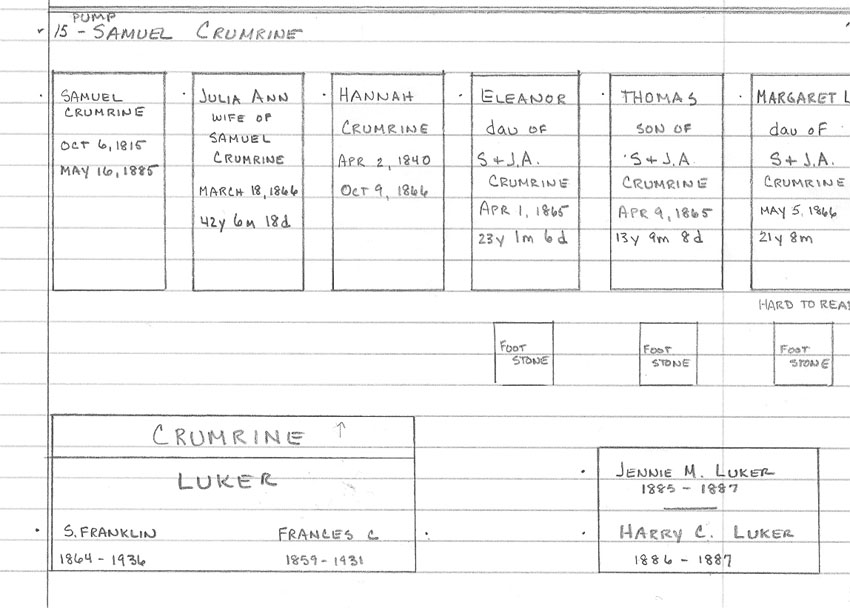 PUMP
✓ 15 - SAMUEL CRUMRINE
SAMUEL
CRUMRINE
OCT 6, 1815
MAY 16, 1885
JULIA ANN
WIFE OF
SAMUEL
CRUMRINE
MARCH 18, 1866
42y 6m 18d
HANNAH
CRUMRINE
APR 2, 1840
OCT 9, 1866
ELEANOR
dau OF
S + J.A.
CRUMRINE
APR 1, 1865
23y 1m 6d
THOMAS
SON OF
S + J.A
CRUMRINE
APR 9, 1865
13y 9m 8d
MARGARET L
dau OF
S + J.A.
CRUMRINE
MAY 5, 1866
21y 8m
HARD TO REA
FOOT
STONE
FOOT
STONE
FOOT
STONE
CRUMRINE ↑
LUKER
S. FRANKLIN
1864 - 1936
FRANCES C
1859 - 1931
JENNIE M. LUKER
1885 - 1887
HARRY C. LUKER
1886 - 1887